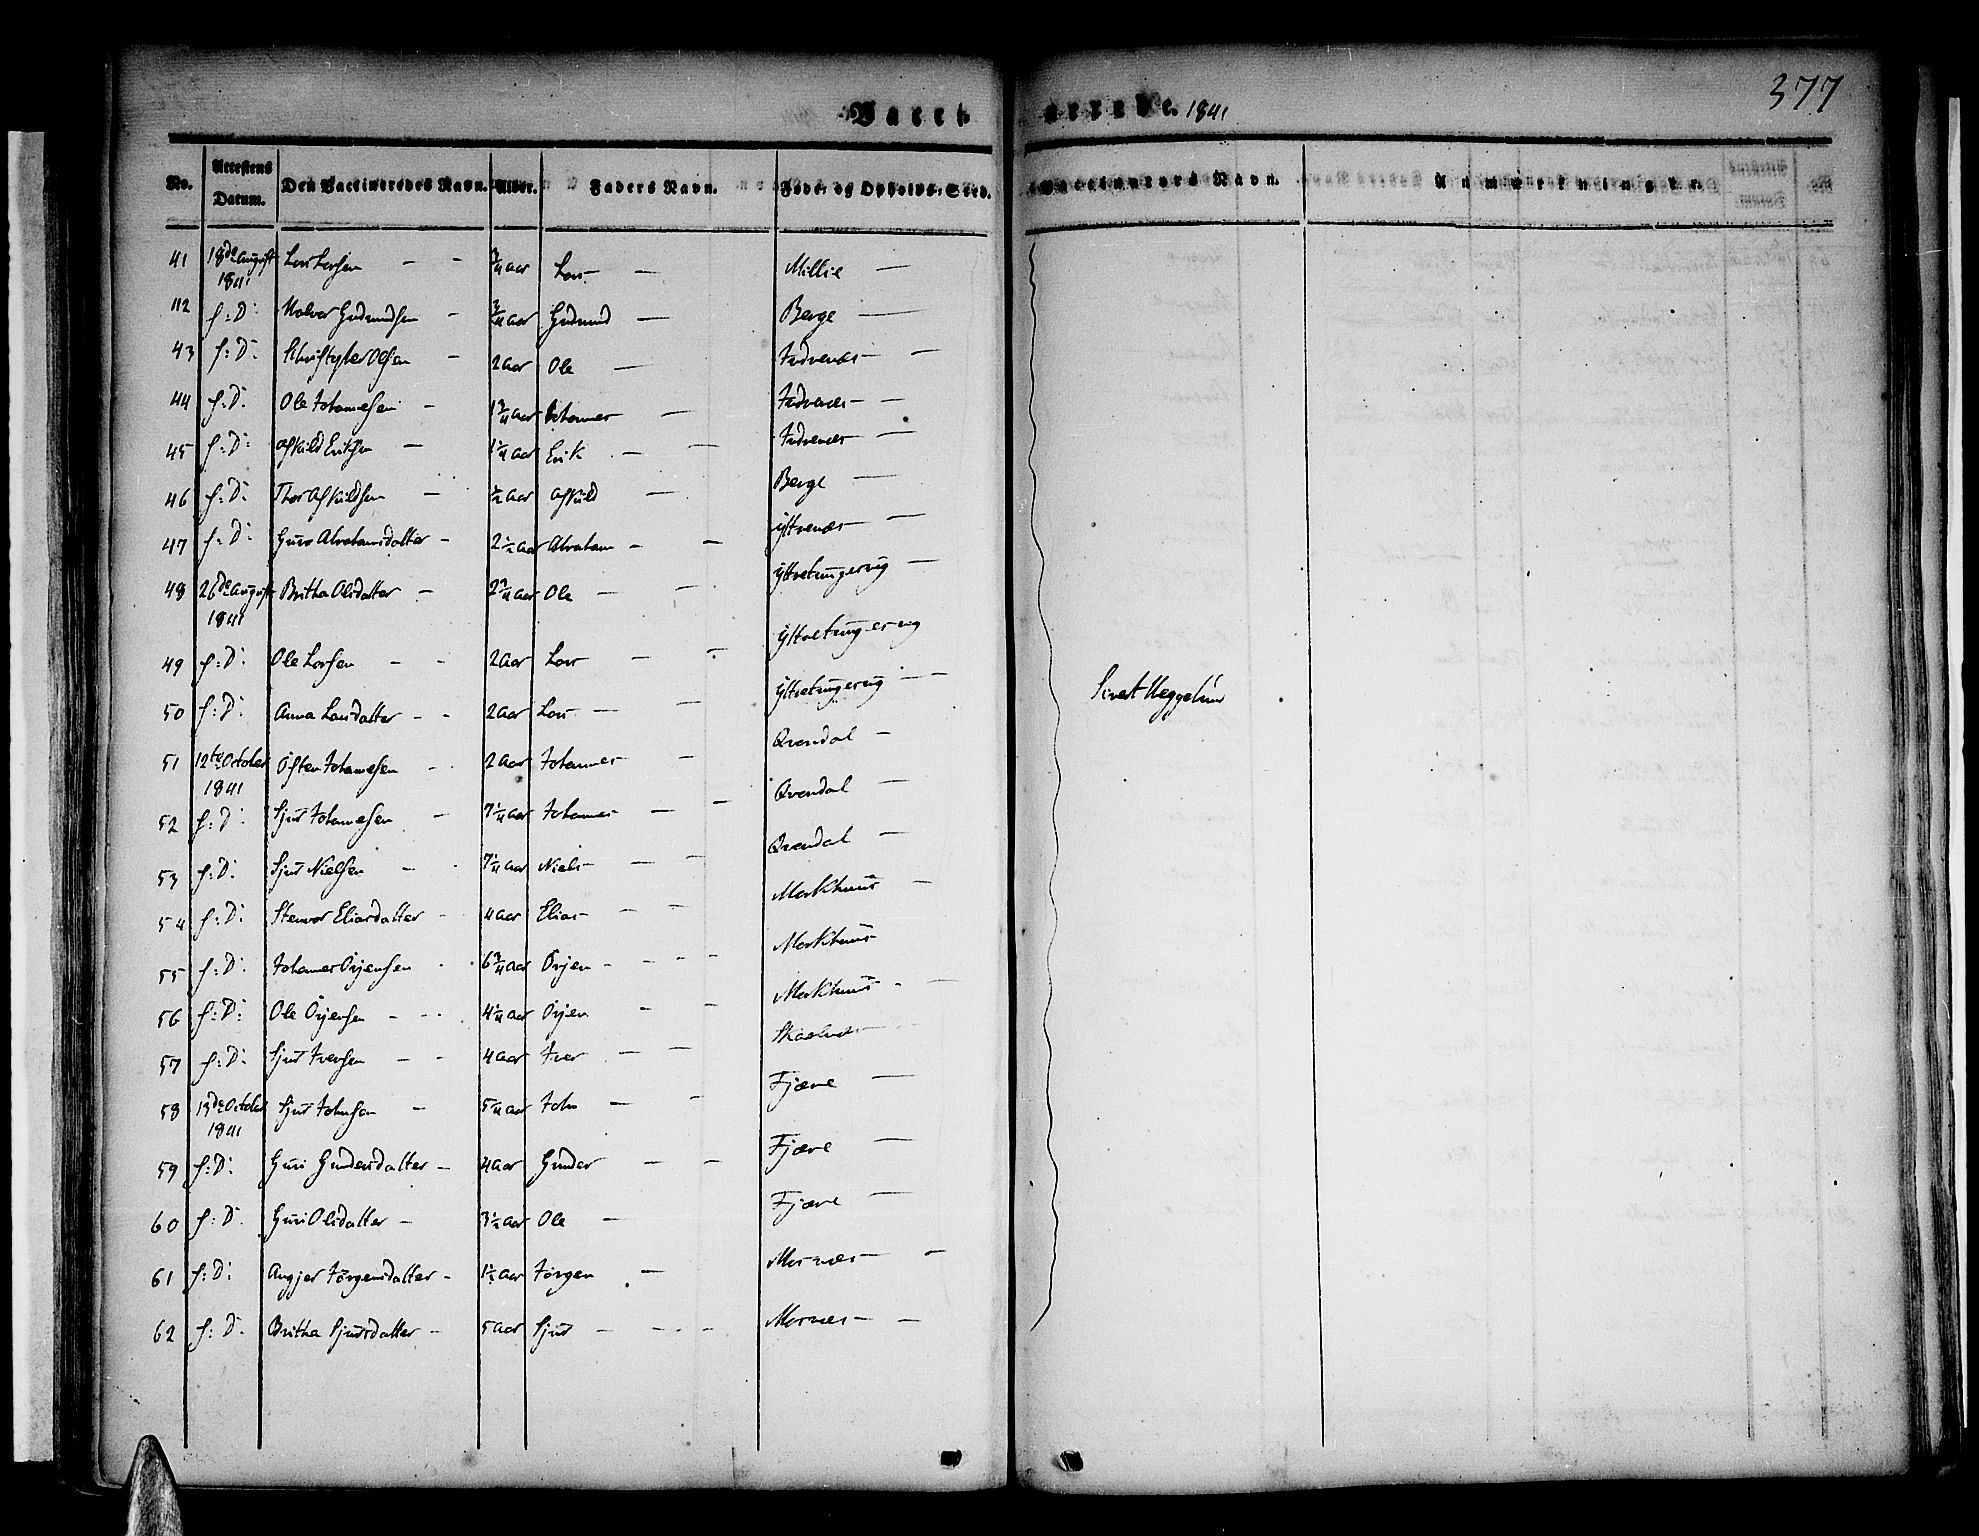 Vacc
erede. 1841
377
No. Attestens Datum. Den Vaccineredes Navn. Alder. Faders Navn. Føde- og Opholds-Sted. Vaccinateurs Navn. Anmærkninger.
41 18de August 1841 Lars Larsen — — 3/4 aar Lars — Millie —
42 s: D: Halvor Gudmundsen — 3/4 aar Gudmund — Berge —
43 s: D: Christopher Olsen — 2 aar Ole — Indrenæs — —
44 s: D: Ole Johannesen — 1 3/4 aar Johannes — Indrenæs — —
45 s: D: Askild Eriksen — 1 1/4 aar Erik — — Indrenæs — —
46 s: D: Thor Askildsen — 1/2 aar Askild — Berge —
47 s: D: Guro Abrahamsdatter — 2 1/2 aar Abraham — — Yttrenæs — —
48 26de August 1841 Britha Olsdatter — 2 3/4 aar Ole — — Yttretungervig —
49 s: D: Ole Larsen — — 2 aar Lars — — Yttretungervig
50 s: D: Anna Larsdatter — — 2 aar Lars — — Yttretungervig — —
Sivert Heggelund
51 12te October 1841 Østen Johannesen — 2 aar Johannes — Qvendal —
52 s: D: Sjur Johannesen — 7 1/4 aar Johannes — — Qvendal —
53 s: D: Sjur Nielsen — 7 1/4 aar Niels — — Qvendal —
54 s: D: Stenvor Eliasdatter — 4 aar Elias — — Markhuus —
55 s: D: Johannes Örjensen 6 3/4 aar Örjen — — — Markhuus
56 s: D: Ole Örjensen — — 4 1/4 aar Örjen — — Markhuus — —
57 s: D: Sjur Iversen — — 4 aar Iver — —
58 13de October 1841 Sjur Johnsen — 5 1/4 aar John — — Fjære —
59 s: D: Guri Gundersdatter — 4 aar Gunder — — Fjære —
60 s: D: Guri Olsdatter — 3 1/2 aar Ole — Fjære —
61 s: D: Angjer Jørgensdatter — 1 1/2 aar Jørgen — Mosnæs — —
62 s: D: Britha Sjursdatter — 5 aar Sjur — — — Mosnæs — —